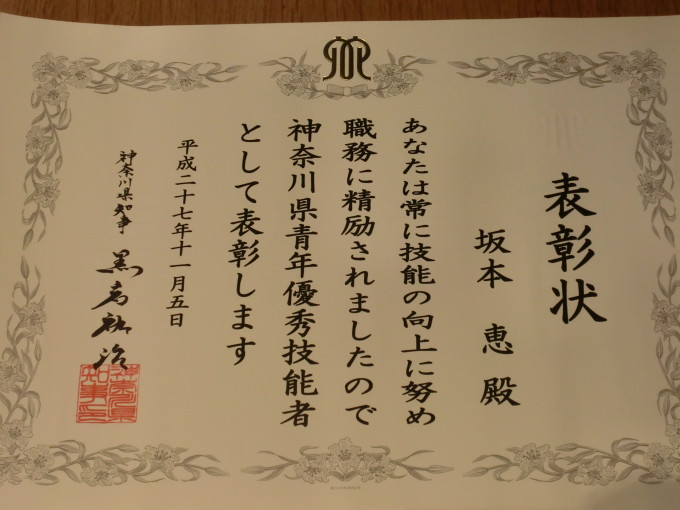 表彰状
坂本 恵 殿
あなたは常に技能の向上に努め
職務に精励されましたので
神奈川県青年優秀技能者
として表彰します
平成二十七年十一月五日
神奈川県知事 黒岩祐治
神奈川県
知事印